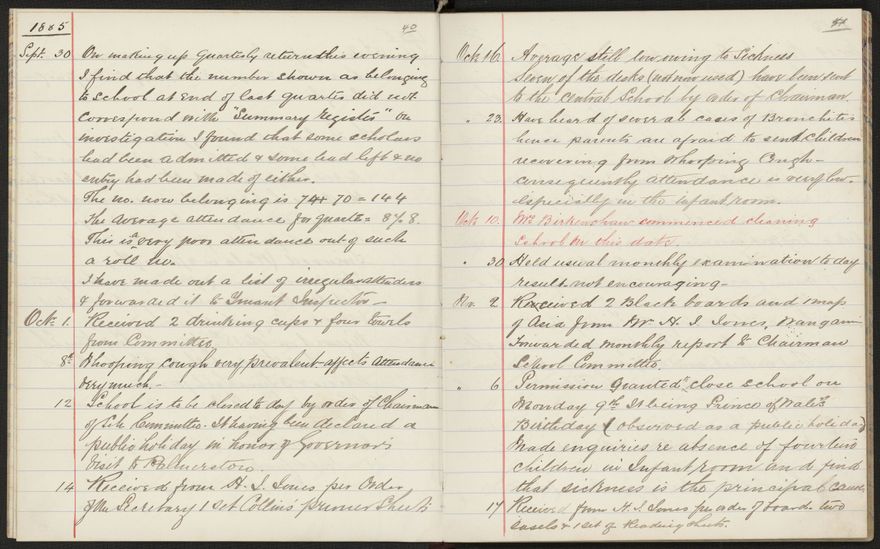 1885
40
Sept. 30 On making up Quarterly returns this evening
I find that the number shown as belonging
to School at end of last quarter did not
correspond with "Summary Register" On
investigation I found that some scholars
had been admitted & some had left & no
entry had been made of either.
The no. now belonging is 74 + 70 = 144
The average attendance for quarter = 87.8.
This is a very poor attendance out of such
a roll no.
I have made out a list of irregular attenders
& forwarded it to Truant Inspector —
Oct. 1. Received 2 drinking cups & four towels
from Committee.
8th Whooping cough very prevalent – affects attendance
very much. –
12 School is to be closed to day by order of Chairman
of Sch. Committee. It having been declared a
public holiday in honor of Governor's
Visit to Palmerston.
14 Received from H. I. Jones per Order
of the Secretary 1 Set Collins' primer Sheets
Oct 16. Average still low owing to Sickness
Seven of the desks (not now used) have been sent
to the Central School by order of Chairman.
" 23. Have heard of several cases of Bronchitis
hence parents are afraid to send children
recovering from Whooping Cough –
consequently attendance is very low.
especially in the infant room.
Oct. 10. Mrs Birkenshaw commenced cleaning
School on this date.
" 30 Held usual monthly examination to day
result not encouraging –
Nov. 2 Received 2 Black boards and 1 map
of Asia from Mr H. I. Jones, Wanganui
Forwarded Monthly report to Chairman
School Committee.
" 6 Permission Granted to close School on
Monday 9th It being Prince of Wales
Birthday (observed as a public holiday)
Made enquiries re absence of fourteen
children in Infant room and find
that sickness is the principal cause.
17 Received from H. I. Jones per order of board two
easels & 1 set of Reading Sheets.